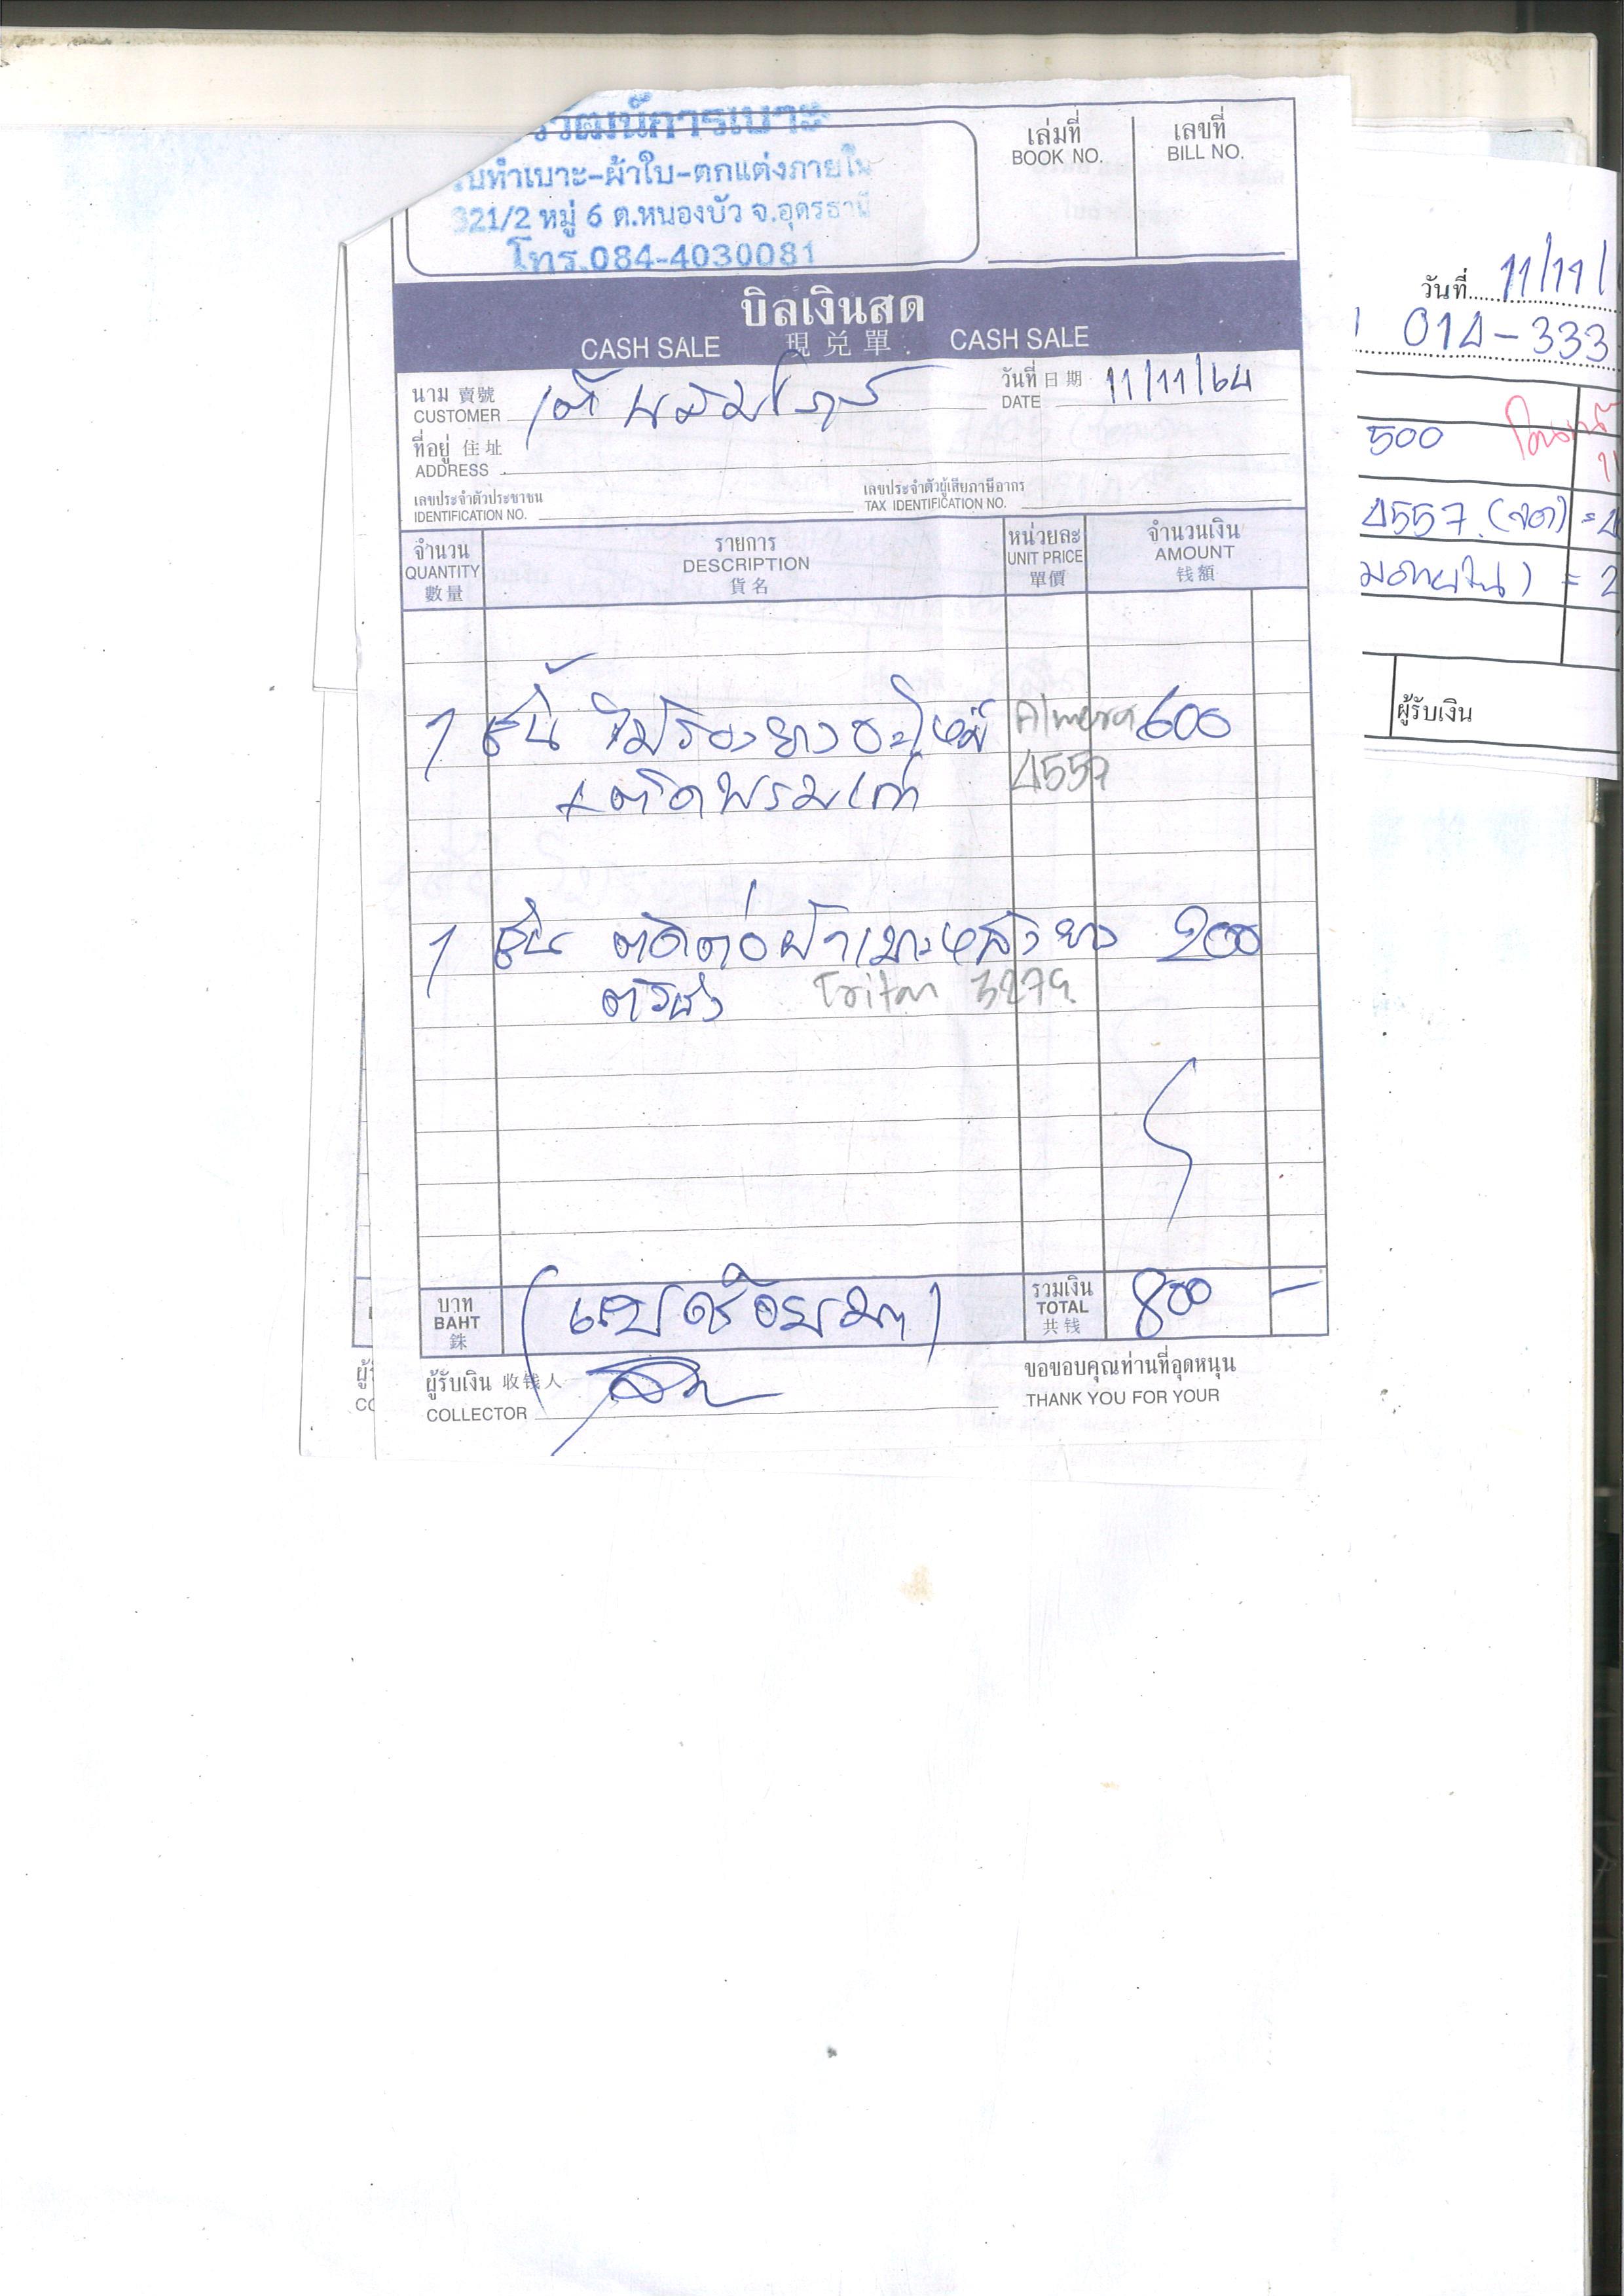 วัฒน์การเบาะ
รับทำเบาะ-ผ้าใบ-ตกแต่งภายใน
321/2 หมู่ 6 ต.หนองบัว จ.อุดรธานี
โทร.084-4030081
เล่มที่
BOOK NO.
เลขที่
BILL NO.
บิลเงินสด
CASH SALE 現兑單 CASH SALE
นาม 賣號
CUSTOMER
วันที่ 日期 11/11/64
DATE
ที่อยู่ 住址
ADDRESS
เลขประจำตัวประชาชน
IDENTIFICATION NO.
เลขประจำตัวผู้เสียภาษีอากร
TAX IDENTIFICATION NO.
จำนวน
QUANTITY
數量
รายการ
DESCRIPTION
貨名
หน่วยละ
UNIT PRICE
單價
จำนวนเงิน
AMOUNT
钱額
1 ชิ้น Almera 600
+ ติดพรมเก่า 4557
1 ชิ้น ตัดต่อผ้าเบาะหลัง 200
Triton 3279
บาท
BAHT
銖
(แปดร้อยบาท)
รวมเงิน
TOTAL
共钱
800 -
ผู้รับเงิน 收钱人
COLLECTOR
ขอขอบคุณท่านที่อุดหนุน
THANK YOU FOR YOUR
วันที่ 11/11/
014-333
500
4557
= 2
ผู้รับเงิน